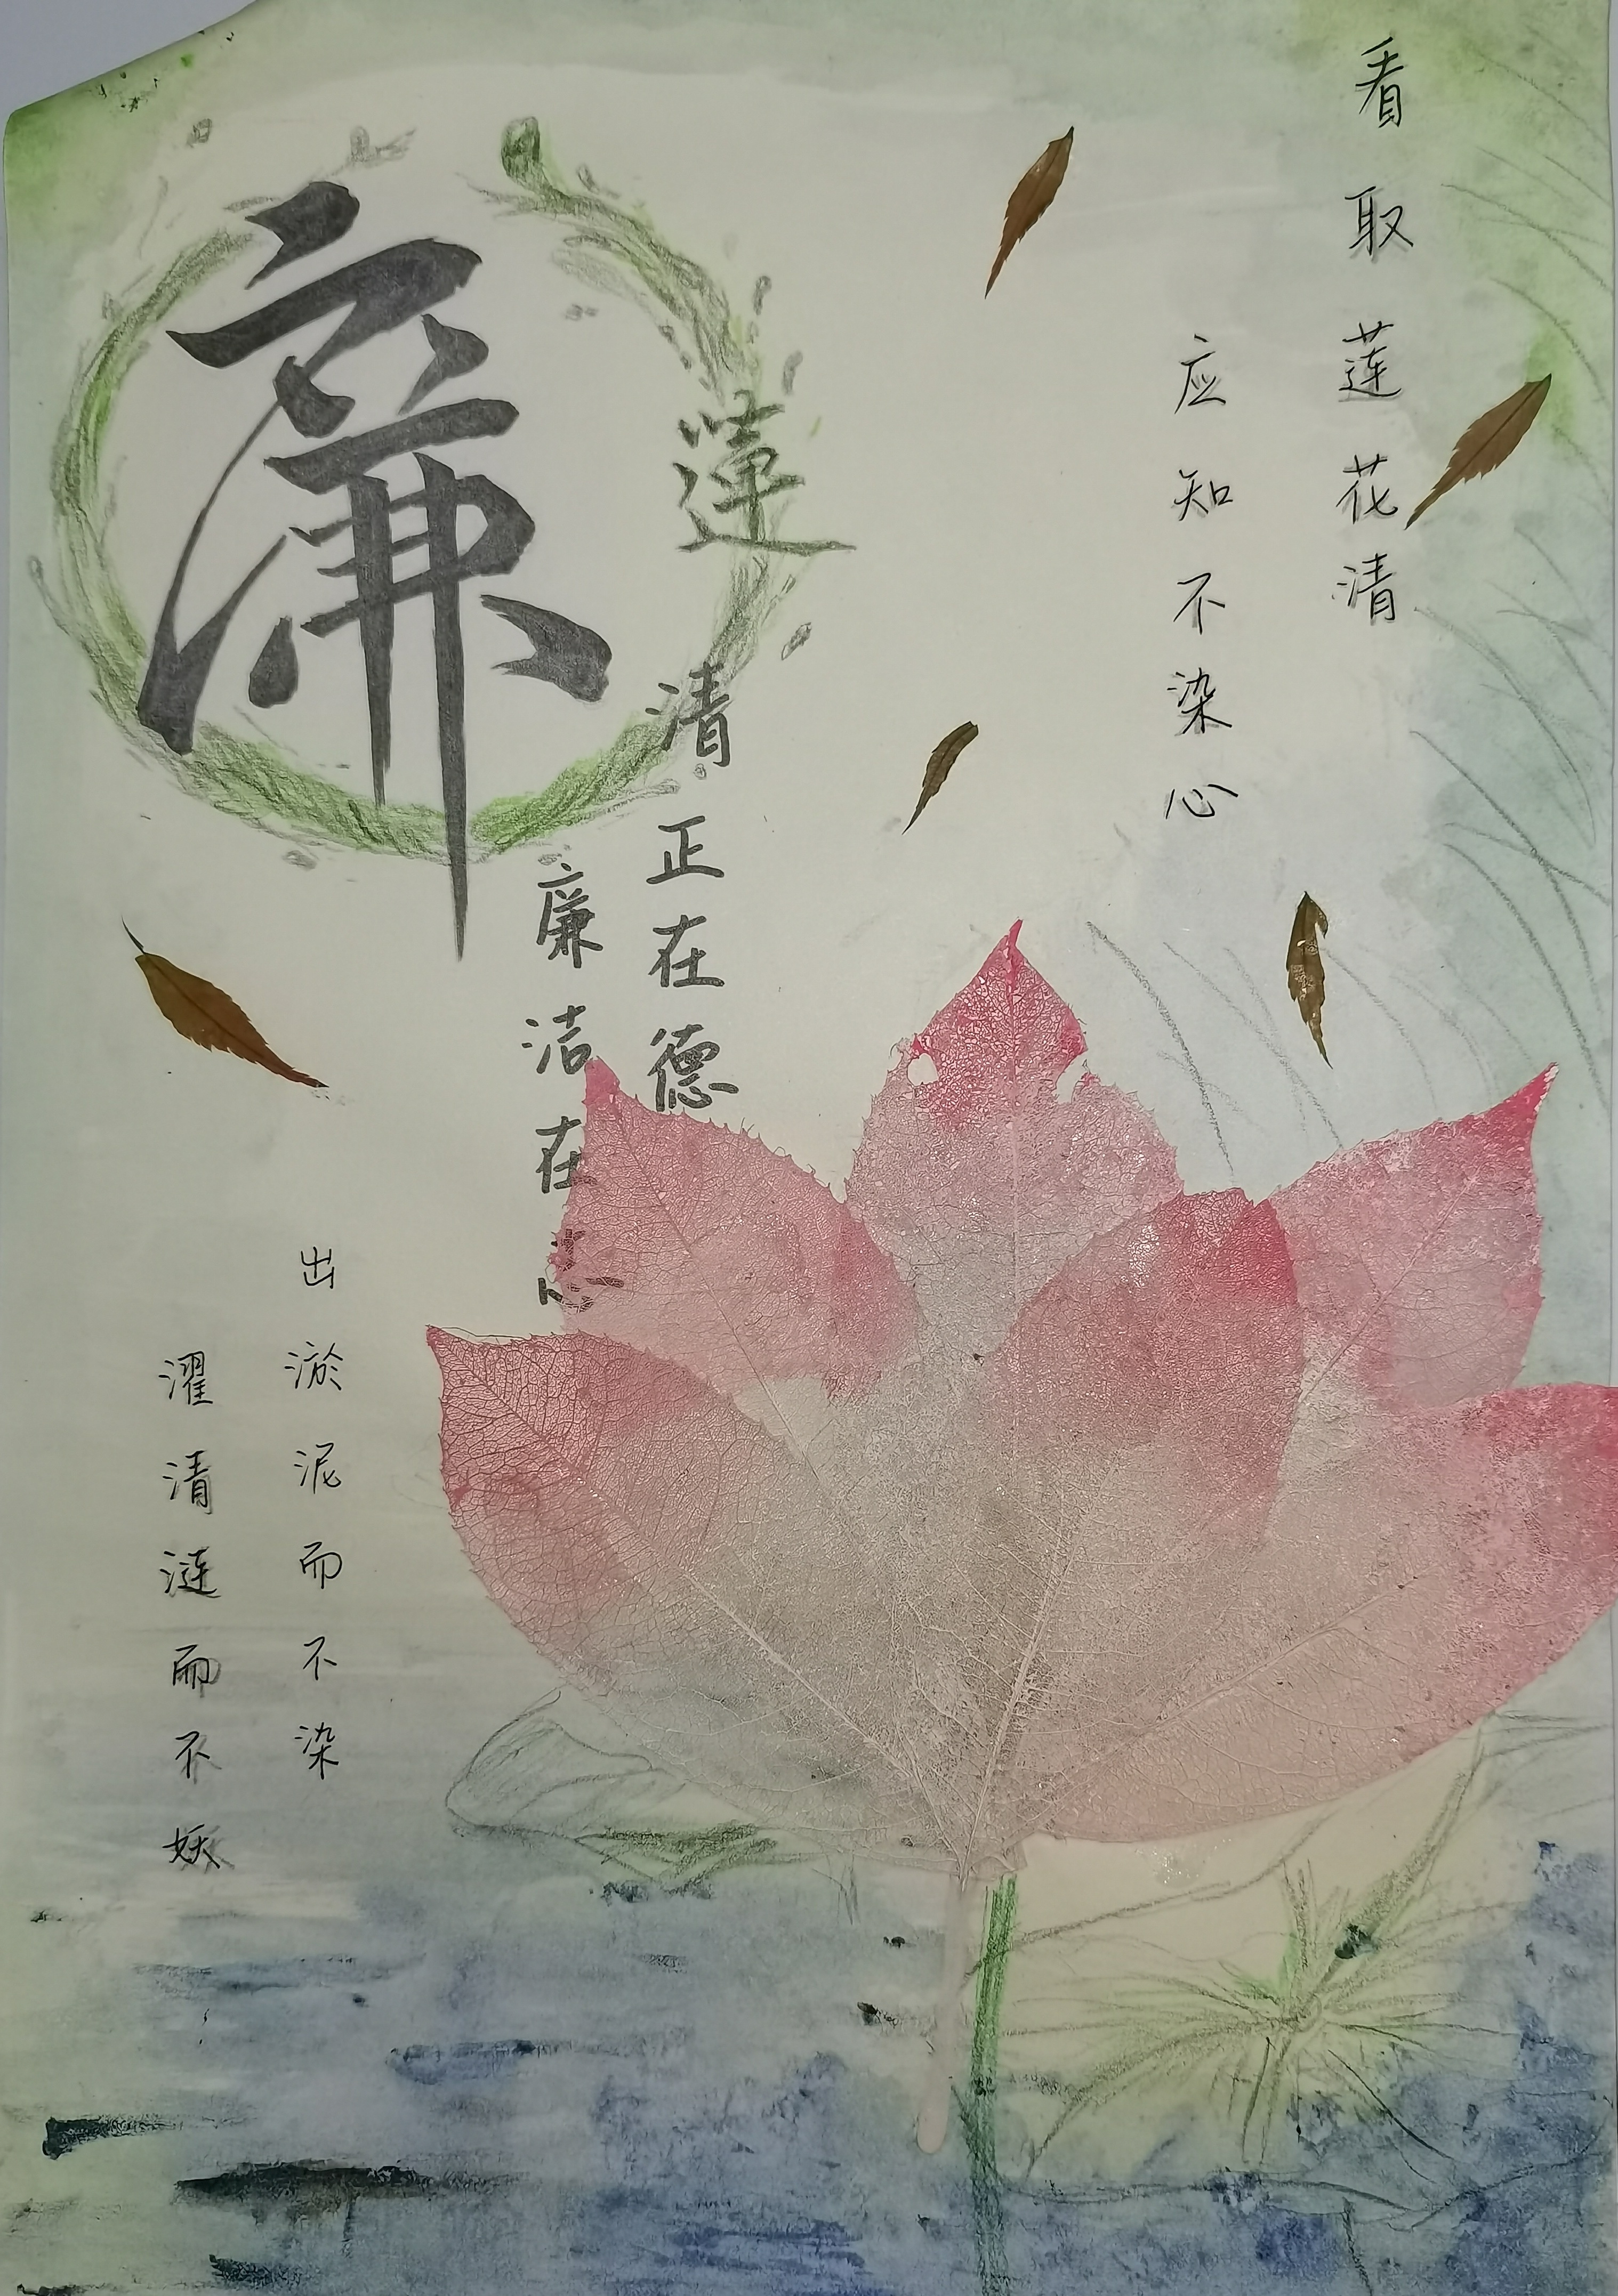 看取莲花清
应知不染心
廉
蓮
清正在德
廉洁在
出淤泥而不染
濯清涟而不妖